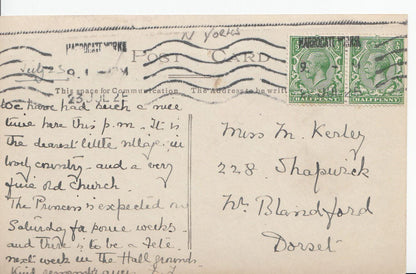 N Yorks
HARROGATE YORKS
HARROGATE YORKS
July 23
POST CARD
This space for Communication. The Address to be written
23 JUL 25
HALFPENNY HALFPENNY
We have had such a nice
time here this p.m. It is
the dearest little village in
lovely country and a very
fine old Church.
The Princess is expected on
Saturday for some weeks
and there is to be a Fete
next week in the Hall grounds
Kind
Miss M. Kerley
228 Shapwick
Nr Blandford
Dorset